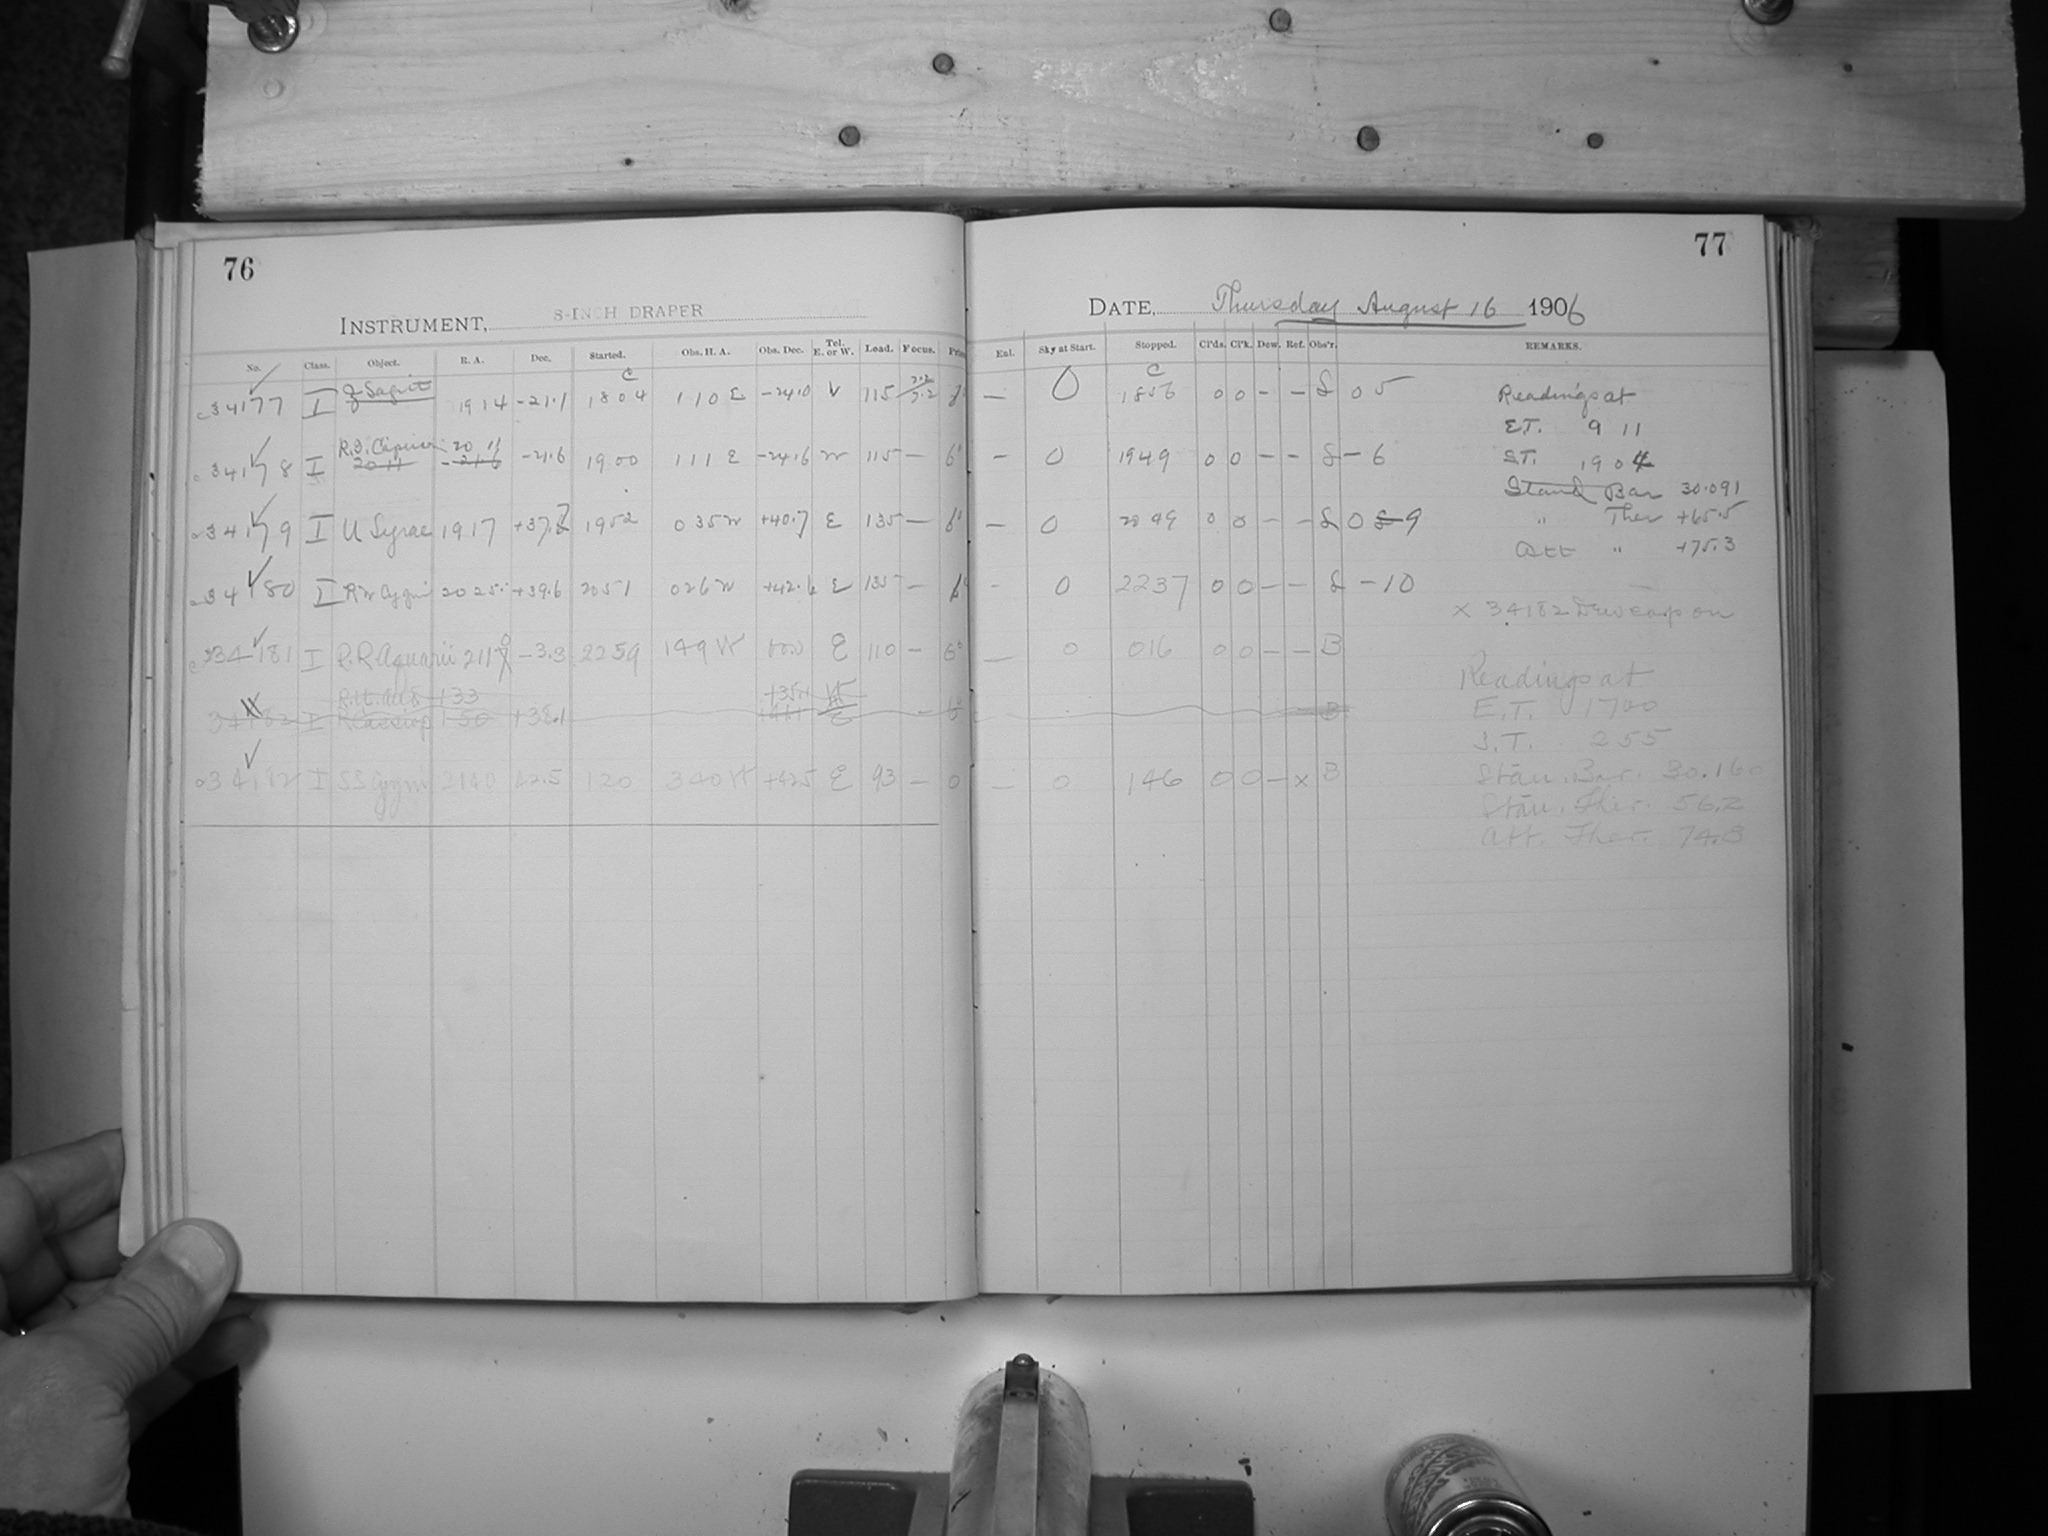 76
INSTRUMENT, 8-INCH DRAPER
No. Class. Object. R. A. Dec. Started. Obs. H. A. Obs. Dec. Tel. E. or W. Lead. Focus.
34177 I 1914 -21.1 1804 110 E -24.0 115
34178 I 20 11 -21.6 1900 111 E -24.6 W 115 —
34179 I U Lyrae 1917 1952 035 W +40.7 E 135 —
34180 I RW Cygni 2025 +39.6 2051 026 W +42.6 E 135 —
34181 I -3.3 2259 149 W E 110 — 6
34182 I R Cassiop 1 50 +38.1
34182 I SS Cygni 2140 42.5 120 340 W +42.5 E 93 — 0
77
DATE, Thursday August 16 1906
Enl. Sky at Start. Stopped. Cl'ds. Cl'k. Dew. Ref. Obs'r. REMARKS.
— 0 1856 0 0 - - 05
— 0 1949 0 0 - - - 6
— 0 0 0 - - 9
- 0 2237 0 0 - - - 10
— 0 016 0 0 - - B
— 0 146 0 0 - x B
Readings at
E.T. 9 11
S.T. 1904
Stand Bar 30.091
" Ther +65.5
Att " +75.3
x 34182 Dewcap on
Readings at
E.T. 1700
S.T. 255
Stan. Bar. 30.160
Stan. Ther. 56.2
Att. Ther. 74.8